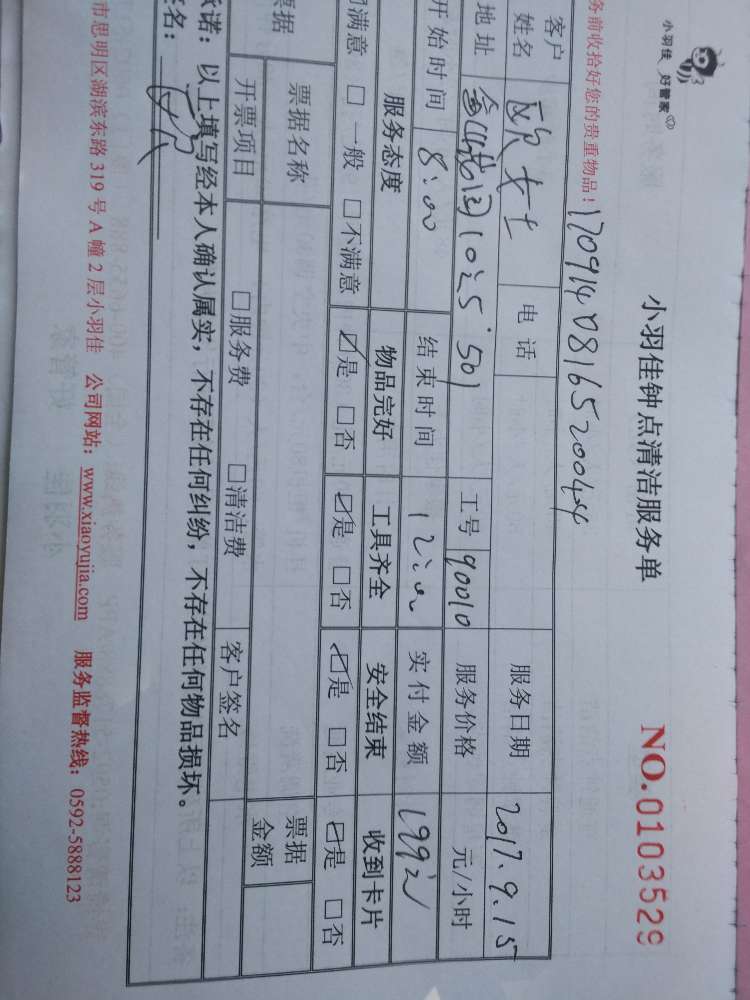 小羽佳 好管家
小羽佳钟点清洁服务单
NO.0103529
务前收拾好您的贵重物品！
1709140816520044
客户姓名 欧女士 电话 服务日期 2017.9.15
地址 1025.501 工号 90010 服务价格 元/小时
开始时间 8:00 结束时间 12:00 实付金额 199元
服务态度 物品完好 工具齐全 安全结束 收到卡片
满意 □一般 □不满意 ☑是 □否 ☑是 □否 ☑是 □否 ☑是 □否
票据名称 票据金额
开票项目 □服务费 □清洁费 客户签名
承诺：以上填写经本人确认属实，不存在任何纠纷，不存在任何物品损坏。
签名：
市思明区湖滨东路319号A幢2层小羽佳 公司网站：www.xiaoyujia.com 服务监督热线：0592-5888123